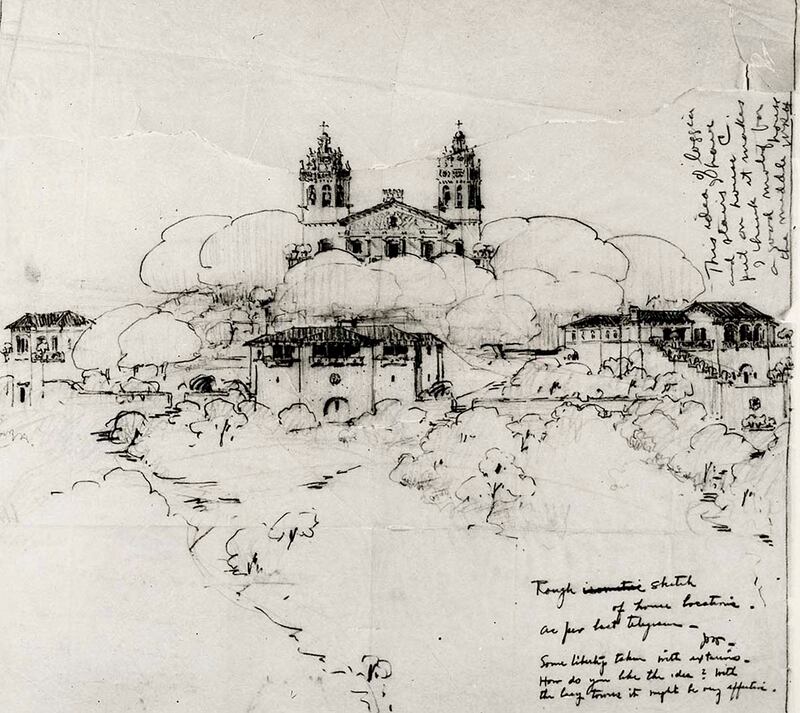 This idea of loggia
and stairs of house
put on house C.
I think it makes
a good motif for
the middle house
WRH
Rough isometric sketch
of house locations.
as per last telegram –
JM –
Some liberty taken with exteriors –
How do you like the idea? With
the big towers it might be very effective.